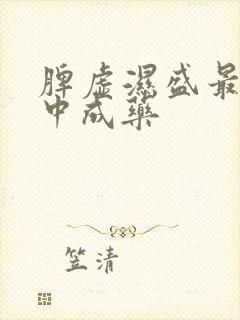 脾虚濕盛最
中成藥
笠清